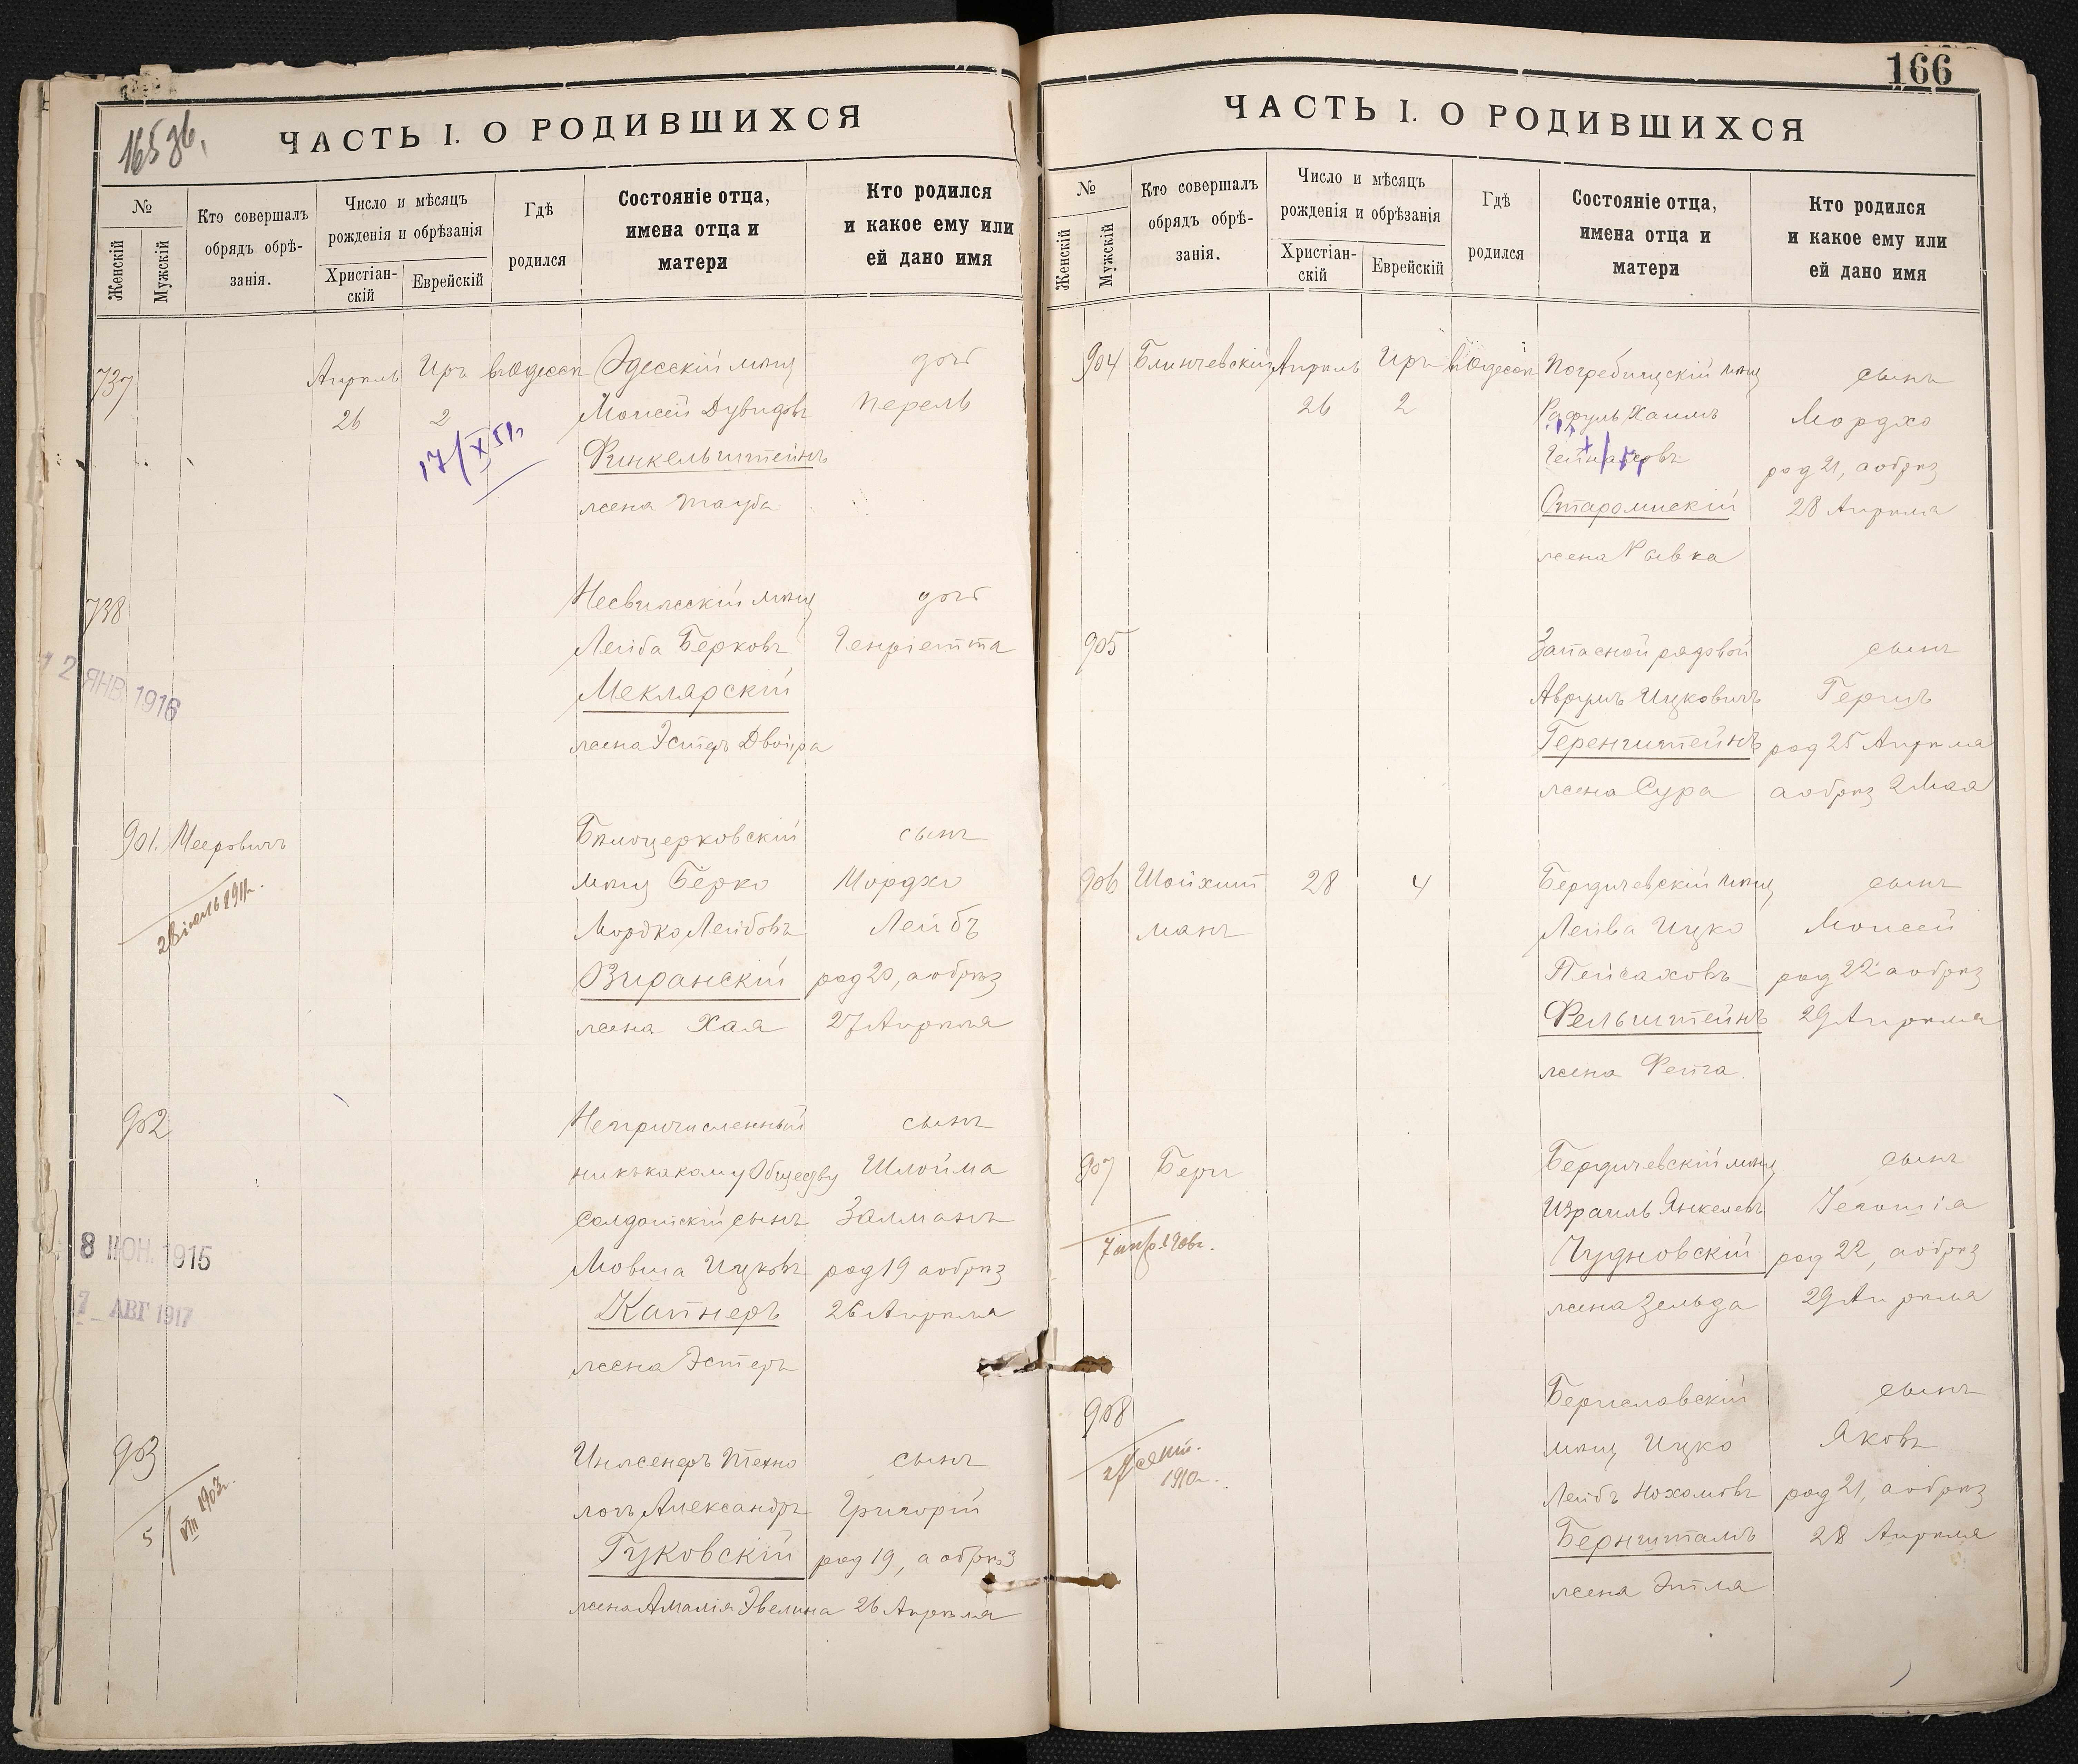 165 об.
ЧАСТЬ I. О РОДИВШИХСЯ
№
Женскій
Мужскій
Кто совершалъ
обрядъ обрѣ-
занія.
Число и мѣсяцъ
рожденія и обрѣзанія
Христіан-
скій
Еврейскій
Гдѣ
родился
Состояніе отца,
имена отца и
матери
Кто родился
и какое ему или
ей дано имя
737 Апрель Иръ въ Одессѣ Одесскій мѣщ дочь
26 2 Моисей Дувидовъ Перель
17/X 51 г.
Финкельштейнъ
жена Тауба
738 Несвижскій мѣщ дочь
Лейба Берковъ Генріетта
2 ЯНВ. 1916
Мекларскій
жена Эстеръ Двойра
901. Мееровичъ Бѣлоцерковскій сынъ
мѣщ Берко Мордхо
Мордко Лейбовъ Лейбъ
Зиранскій род 20, а обрѣз
жена Хая 27 Апрѣля
902 Непричисленный сынъ
ни къ какому Обществу Шлойма
Солдатскій сынъ Залманъ
8 ІЮН. 1915
Мовша Ицковъ род 19 а обрѣз
7 АВГ 1917
Капнеръ 26 Апрѣля
жена Эстеръ
903 Инженеръ Техно сынъ
логъ Александръ Григорій
5/VIII 1903 г.
Гуковскій род 19, а обрѣз
жена Амалія Эвелина 26 Апрѣля
166
ЧАСТЬ I. О РОДИВШИХСЯ
№
Женскій
Мужскій
Кто совершалъ
обрядъ обрѣ-
занія.
Число и мѣсяцъ
рожденія и обрѣзанія
Христіан-
скій
Еврейскій
Гдѣ
родился
Состояніе отца,
имена отца и
матери
Кто родился
и какое ему или
ей дано имя
904 Блинчевскій Апрель Иръ въ Одессѣ Погребищскій мѣщ сынъ
26 2 Рафуль Хаимъ Мордхо
род 21, а обрѣз
Староминскій 28 Апрѣля
жена Рывка
905 Запасной рядовой сынъ
Аврумъ Ицковичъ Гершъ
Геренштейнъ род 25 Апрѣля
жена Сура а обрѣз 2 Мая
906 Шойхит 28 4 Бердичевскій мѣщ сынъ
манъ Лейва Ицко Моисей
Пейсаховъ род 22 а обрѣз
Фельштейнъ 29 Апрѣля
жена Фейга
907 Бери Бердичевскій мѣщ сынъ
Израиль Янкелевъ
Чудновскій род 22, а обрѣз
жена Зельда 29 Апрѣля
908 Бериславскій сынъ
мѣщ Ицко Яковъ
1910 г.
Лейбъ Нохомовъ род 21, а обрѣз
Бернштамъ 28 Апрѣля
жена Этля